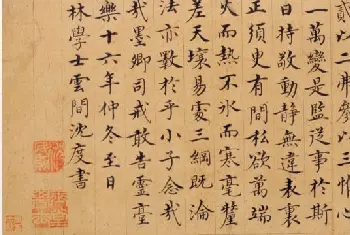 貳以二弗參以三惟心
一萬變是監從事於斯
曰持敬動靜無違表裏
正須臾有間私欲萬端
火而熱不冰而寒毫釐
差天壤易處三綱既淪
法亦斁於乎小子念哉
哉墨卿司戒敢告靈臺
樂十六年仲冬至日
林學士雲間沈度書